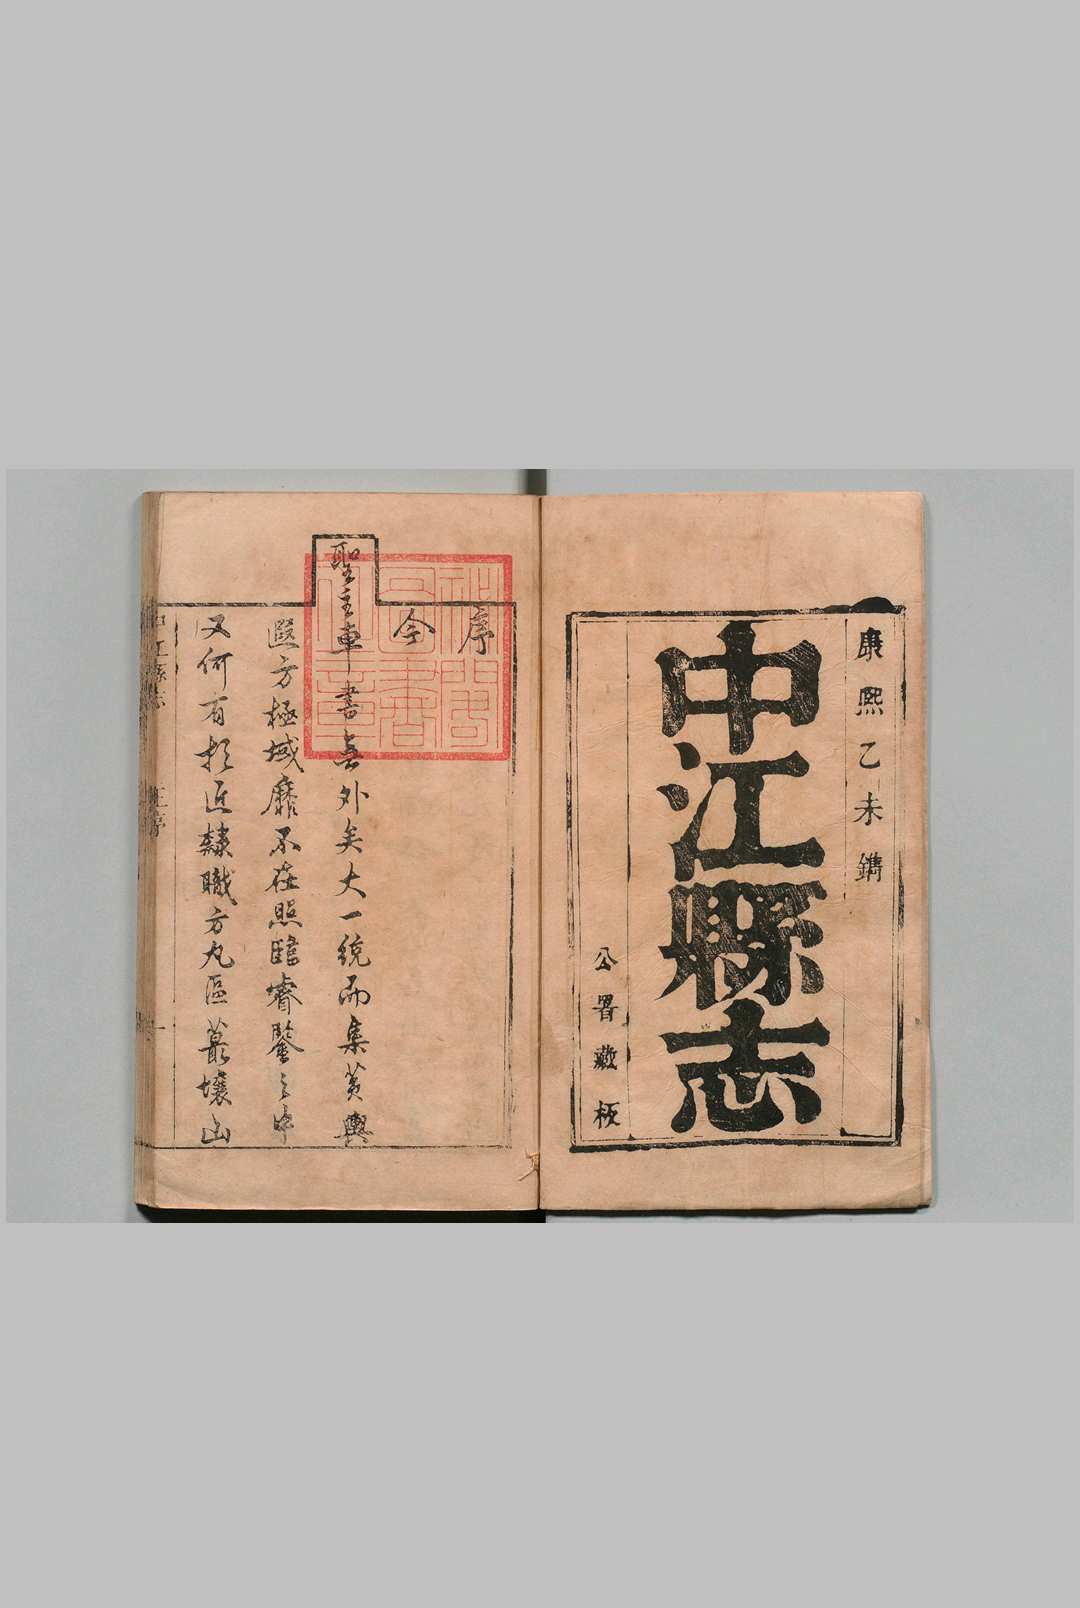 康熙乙未鐫
中江縣志
公署藏板
序
今
聖主車書無外矣大一統而集黃輿
遐方極域靡不在照臨睿鑒之中
又何有於近隸職方丸區蕞壤山
中江縣志
序
一
秘閣
圖書
之章